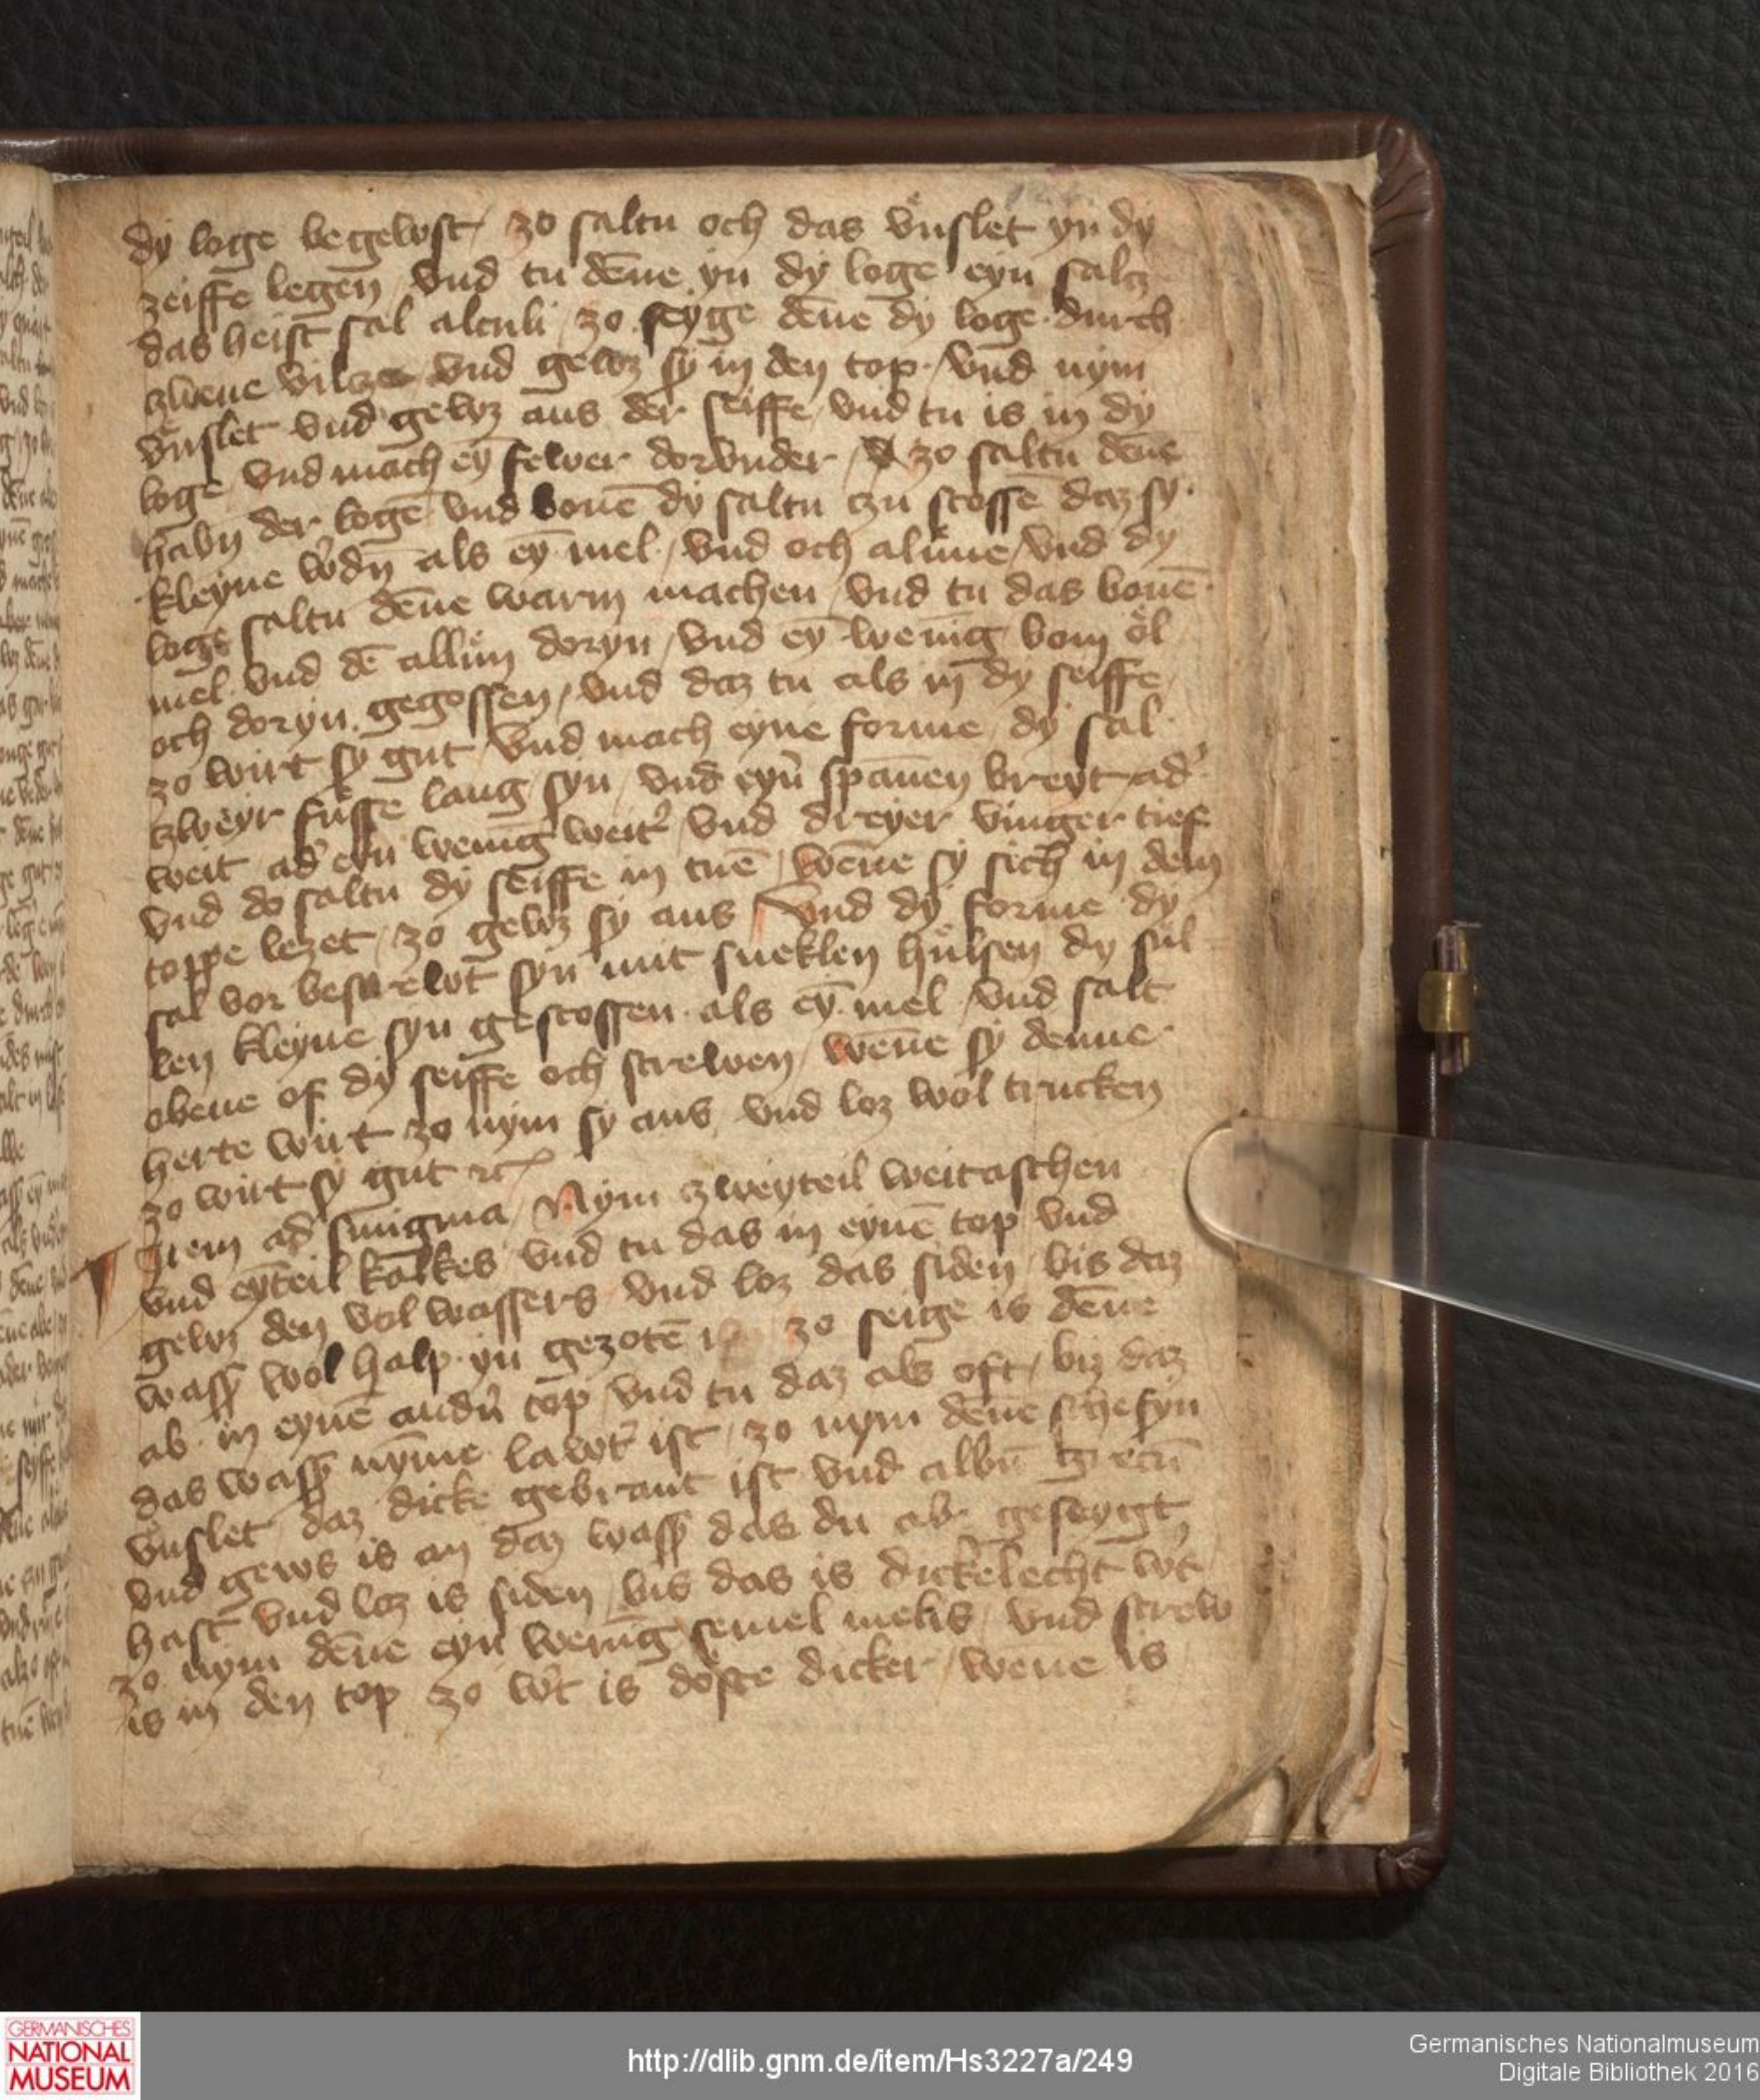 dy loge begewst / zo saltu och das vnslet yn dy
zeiffe legen / vnd tu dēne yn dy loge eyn salcz
das heist sal alculi / zo seyge dēne dy loge durch
czwene vilcze vnd gewz sy in den top / vnd nym
vnslet vnd gewz aus der seiffe / vnd tu is in dy
loge vnd mach eȳ fewer dorvnder / zo saltu dēne
habn der loge vnd bonē dy saltu czu stossē daz sy
kleyne w'dn̄ als eȳ mel / vnd och alūne / vnd dy
loge saltu dēne warm machen / vnd tu das bonē
mel vnd dē allun doryn / vnd eȳ wenig bom öl
och doryn gegossen / vnd daz tu als in dy seiffe
zo wirt sy gut / vnd mach eyne forme / dy sal
czweyr füsse lang syn / vnd eyn' spannen breyt ad'
weit ad' eyn wenig weit' / vnd dreyer vinger tief
vnd do saltu dy seiffe in tuē / wēne sy sich in dem
toppe lezet / zo gewz sy aus / Vnd dy forme dy
sal vor bestrewt syn mit hülsen dy sul
len kleyne syn gestossen als eȳ mel / vnd salt
obene of dy seiffe och strewen / wēne sy denne
herte wirt zo nym sy aus / vnd loz wol trucken
zo wirt sy gut rc
Item ad smigma / Nym zweyteil weitaschen
vnd eyteil kalkes vnd tu das in eynē top vnd
gewz den vol wassers vnd loz das siden / bis daz
wass' wol halp yn gezotē zo seige is dēne
ab in eynē andn̄ top / vnd tu daz als oft / biz daz
das wass' nȳme lawt' ist / zo nym dēne schefyn
vnslet / daz dicke gebrant ist vnd albū
vnd gews is an daz wass' das du ab geseygt
hast vnd loz is siden / bis das is dickelecht w't
zo nym dēne eyn wenig semel melis / vnd strew
is in den top zo w't is doste dicker / wēne is
GERMANISCHES
NATIONAL
MUSEUM
http://dlib.gnm.de/item/Hs3227a/249
Germanisches Nationalmuseum
Digitale Bibliothek 2016